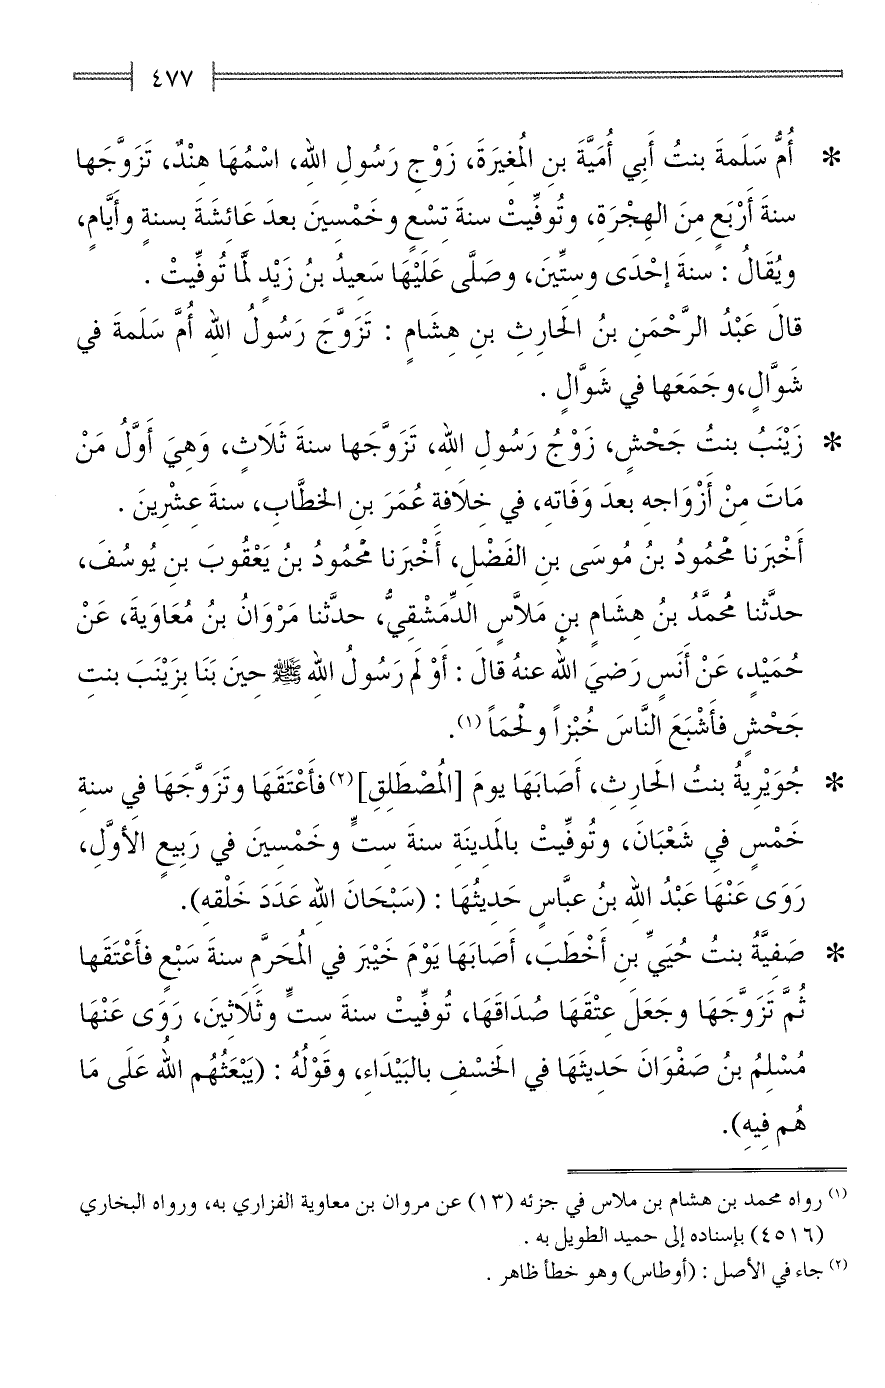 ٤٧٧
* أُمُّ سَلَمةَ بنتُ أَبي أُمَيَّةَ بنِ الْمُغيَرةَ، زَوْج رَسُولِ الله، اسْمُهَا هنْدٌ، تَزَوَّجَها
سنةَ أَرْبَعٍ مِنَ الهِجْرَةِ، وتُوفِّيتْ سنةَ تِسْعٍ وخَمْسينَ بعدَ عَائشَةَ بسنةٍ وأيَّامٍ،
ويُقَالُ : سنةَ إحْدَى وستِّينَ، وصَلَّى عَلَيْهَا سَعيدُ بنُ زَيْدٍ لَمَّا تُوفِّيتْ .
قالَ عَبْدُ الرَّحْمَنِ بنُ الحَارثِ بنِ هِشَامٍ : تَزَوَّجَ رَسُولُ اللهِ أُمَّ سَلَمةَ في
شَوَّالٍ،وجَمَعَها في شَوَّالٍ .
* زَيْنَبُ بنتُ جَحْشٍ، زَوْجُ رَسُولِ الله، تَزَوَّجَها سنةَ ثَلَاثٍ، وَهِيَ أَوَّلُ مَنْ
مَاتَ مِنْ أَزْوَاجه بعدَ وَفَاته، في خلَافةِ عُمَرَ بنِ الخطَّابِ، سنةَ عشْرينَ .
أَخْبَرنا مَحْمُودُ بنُ مُوسَى بنِ الفَضْلِ، أَخْبَرنا مَحْمُودُ بنُ يَعْقُوبَ بنِ يُوسُفَ،
حدَّثنا مُحمَّدُ بنُ هِشَامِ بنِ مَلاَّسٍ الدِّمَشْقِيُّ، حدثَّنا مَرْوَانُ بنُ مُعَاوَيةَ، عَنْ
حُمَيْدٍ، عَنْ أَنَسٍ رَضيَ اللهُ عنهُ قالَ : أَوْ لَمَ رَسُولُ اللهِ ﷺ حينَ بَنَا بزَيْنَبَ بنتِ
جَحْشٍ فأَشْبَعَ النَّاسَ خُبْزاً ولَحْمَاً (١).
* جُوَيْرِيةُ بنتُ الحَارثِ، أَصَابَهَا يومَ [الْمُصْطَلِقِ](٢) فأَعْتَقَهَا وتَزَوَّجَهَا في سنةِ
خَمْسٍ في شَعْبَانَ، وتُوفِّيتْ بالَمدينَةِ سنةَ ستٍّ وخَمْسينَ في رَبيعٍ الأوَّلِ،
رَوَى عَنْهَا عَبْدُ اللهِ بنُ عبَّاسٍ حَديثُهَا : (سَبْحَانَ اللهِ عَدَدَ خَلْقه).
* صَفيَّةُ بنتُ حُيَيِّ بنِ أَخْطَبَ، أَصَابَهَا يَوْمَ خَيْبَرَ في الْمُحَرَّمِ سنةَ سَبْعٍ فأَعْتَقَها
ثُمَّ تَزَوَّجَهَا وجَعَلَ عِتْقَهَا صُدَاقَهَا، تُوفِّيتْ سنةَ ستٍّ وثَلَاثينَ، رَوَى عَنْهَا
مُسْلِمُ بنُ صَفْوَانَ حَدِيثَهَا في الخَسْفِ بالبَيْدَاءِ، وقَوْلُهُ : (يَبْعَثُهُم اللهُ عَلَى مَا
هُم فِيهِ).
(١) رواه محمد بن هشام بن ملاس في جزئه (١٣) عن مروان بن معاوية الفزاري به، ورواه البخاري
(٤٥١٦) بإسناده إلى حميد الطويل به .
(٢) جاء في الأصل : (أوطاس) وهو خطأ ظاهر .